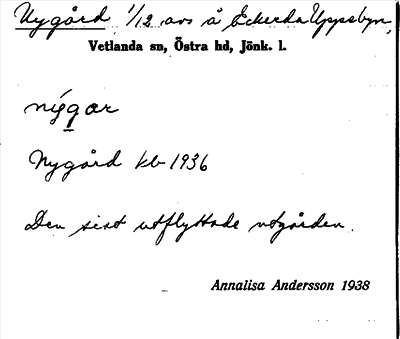 Nygård 1/12 avs å Eckerda Uppsbyn,
Vetlanda sn, Östra hd, Jönk. l.
nýgar
Nygård kb 1936
Den sist utflyttade utgården.
Annalisa Andersson 1938